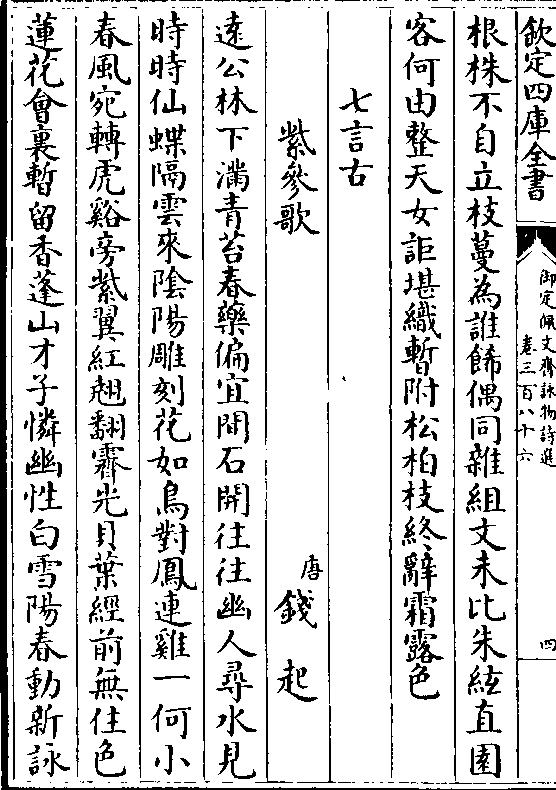 欽定四庫全書
御定佩文齋詠物詩選
卷三百八十六
四
根株不自立枝蔓為誰餙偶同雜組文未比朱絃直園
客何由整天女詎堪織暫附松柏枝終辭霜露色
七言古
紫參歌
唐 錢起
遠公林下滿青苔春藥偏宜間石開往往幽人尋水見
時時仙蝶隔雲來陰陽雕刻花如鳥對鳳連雞一何小
春風宛轉虎谿旁紫翼紅翹翻霽光貝葉經前無住色
蓮花會裏暫留香蓬山才子憐幽性白雪陽春動新詠